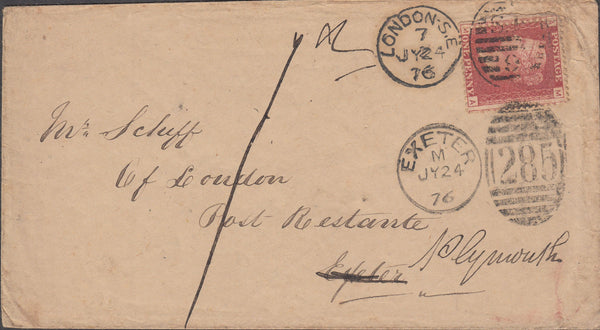 LONDON-S.E
7
JY 24
76
POSTAGE
ONE PENNY
M
A
EXETER
M
JY 24
76
285
Mr. Schiff
Of London
Post Restante
Exeter Plymouth